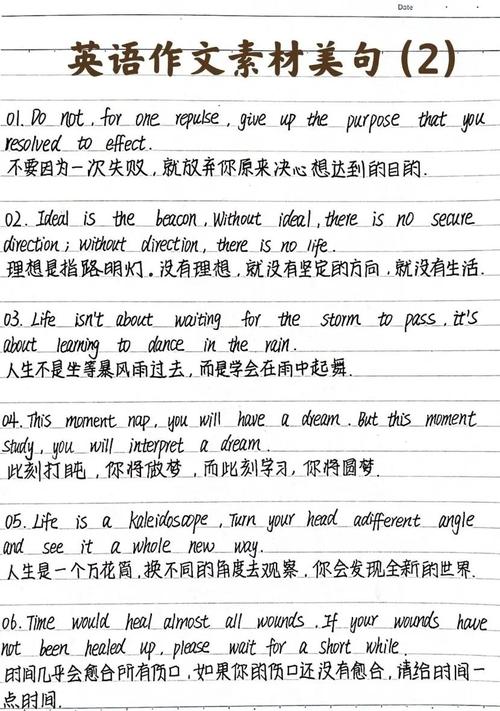 Date
英语作文素材美句(2)
01. Do not, for one repulse, give up the purpose that you
resolved to effect.
不要因为一次失败,就放弃你原来决心想达到的目的.
02. Ideal is the beacon, Without ideal, there is no secure
direction; without direction, there is no life.
理想是指路明灯。没有理想,就没有坚定的方向,就没有生活.
03. Life isn't about waiting for the storm to pass, it's
about learning to dance in the rain.
人生不是坐等暴风雨过去,而是学会在雨中起舞.
04. This moment nap, you will have a dream. But this moment
study, you will interpret a dream.
此刻打盹,你将做梦,而此刻学习,你将圆梦.
05. Life is a kaleidoscope, Turn your head adifferent angle
and see it a whole new way.
人生是一个万花筒,换不同的角度去观察,你会发现全新的世界.
06. Time would heal almost all wounds. If your wounds have
not been healed up, please wait for a short while.
时间几乎会愈合所有伤口,如果你的伤口还没有愈合,请给时间一
点时间.